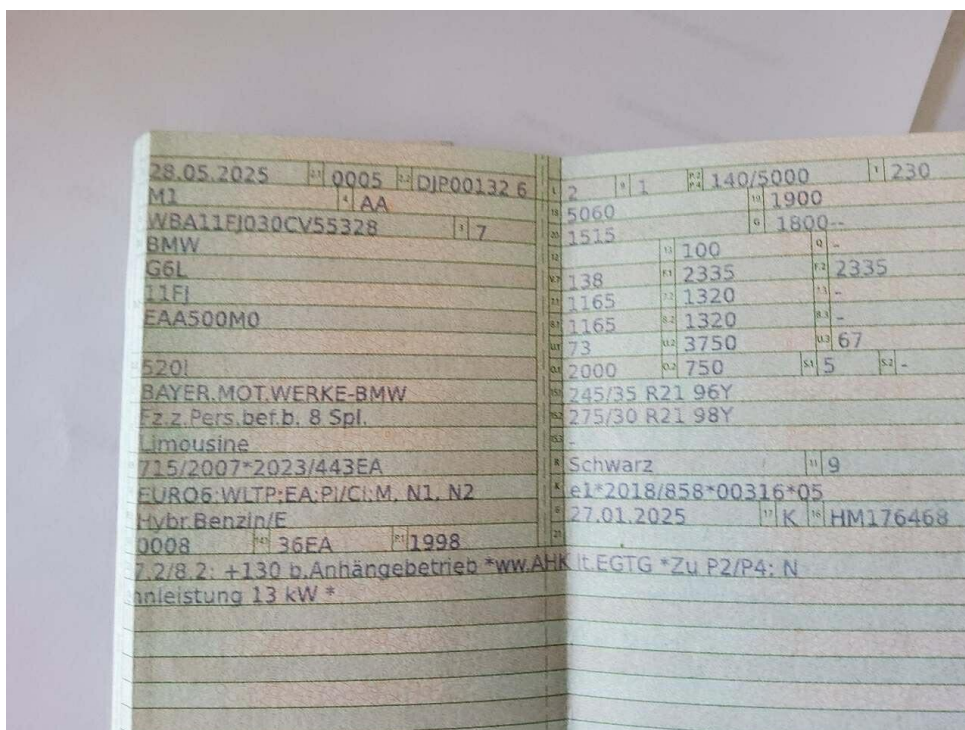 28.05.2025 2.1 0005 2.2 DJP00132 6
M1 4 AA
WBA11FJ030CV55328 3 7
BMW
G6L
11FJ
EAA500M0
520I
BAYER.MOT.WERKE-BMW
Fz.z.Pers.bef.b. 8 Spl.
Limousine
715/2007*2023/443EA
EURO6;WLTP;EA;PI/CI;M, N1, N2
Hybr.Benzin/E
0008 14.1 36EA P.1 1998
7.2/8.2: +130 b.Anhängebetrieb *ww.AHK lt.EGTG *Zu P2/P4: N
nnleistung 13 kW *
L 2 9 1 P.2 P.4 140/5000 T 230
18 5060 19 1900
20 1515 G 1800--
12 13 100 Q -
V.7 138 F.1 2335 F.2 2335
7.1 1165 7.2 1320 7.3 -
8.1 1165 8.2 1320 8.3 -
U.1 73 U.2 3750 U.3 67
O.1 2000 O.2 750 S.1 5 S.2 -
15.1 245/35 R21 96Y
15.2 275/30 R21 98Y
15.3 -
R Schwarz 11 9
K e1*2018/858*00316*05
6 27.01.2025 17 K 16 HM176468
21